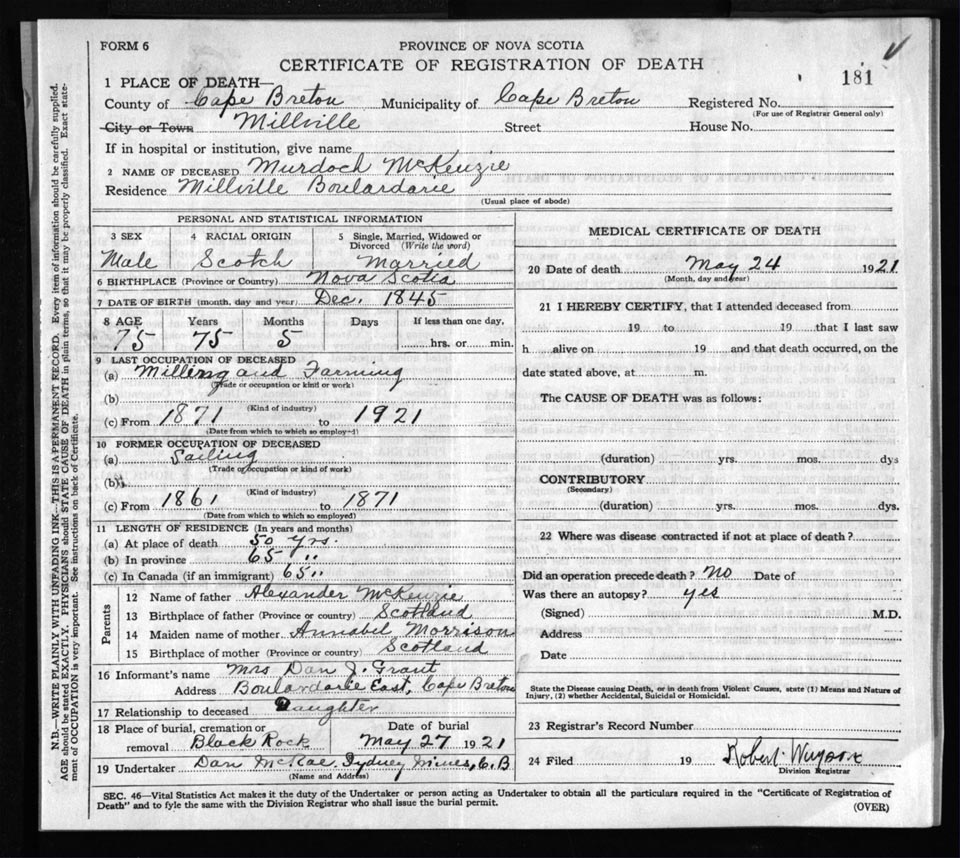 FORM 6
PROVINCE OF NOVA SCOTIA
CERTIFICATE OF REGISTRATION OF DEATH
181
1 PLACE OF DEATH—
County of Cape Breton Municipality of Cape Breton Registered No.
(For use of Registrar General only)
City or Town Millville Street House No.
If in hospital or institution, give name
2 NAME OF DECEASED Murdoch McKenzie
Residence Millville Boulardarie
(Usual place of abode)
PERSONAL AND STATISTICAL INFORMATION
3 SEX 4 RACIAL ORIGIN 5 Single, Married, Widowed or Divorced (Write the word)
Male Scotch Married
6 BIRTHPLACE (Province or Country) Nova Scotia
7 DATE OF BIRTH (month, day and year) Dec. 1845
8 AGE Years Months Days If less than one day,
75 75 5 hrs. or min.
9 LAST OCCUPATION OF DECEASED
(a) Milling and Farming
(Trade or occupation or kind or work)
(b)
(Kind of industry)
(c) From 1871 to 1921
(Date from which to which so employed)
10 FORMER OCCUPATION OF DECEASED
(a) Sailing
(Trade or occupation or kind of work)
(b)
(Kind of industry)
(c) From 1861 to 1871
(Date from which to which so employed)
11 LENGTH OF RESIDENCE (In years and months)
(a) At place of death 50 yrs.
(b) In province 65 "
(c) In Canada (if an immigrant) 65 "
Parents
12 Name of father Alexander McKenzie
13 Birthplace of father (Province or country) Scotland
14 Maiden name of mother Annabel Morrison
15 Birthplace of mother (Province or country) Scotland
16 Informant's name Mrs Dan J. Grant
Address Boulardarie East, Cape Breton
17 Relationship to deceased Daughter
18 Place of burial, cremation or removal Black Rock
Date of burial May 27 1921
19 Undertaker Dan McRae, Sydney Mines, C.B
(Name and Address)
MEDICAL CERTIFICATE OF DEATH
20 Date of death May 24 1921
(Month, day and year)
21 I HEREBY CERTIFY, that I attended deceased from
19 to 19 that I last saw
h alive on 19 and that death occurred, on the
date stated above, at m.
The CAUSE OF DEATH was as follows:
(duration) yrs. mos. dys
CONTRIBUTORY
(Secondary)
(duration) yrs. mos. dys.
22 Where was disease contracted if not at place of death?
Did an operation precede death? No Date of
Was there an autopsy? yes
(Signed) M.D.
Address
Date
State the Disease causing Death, or in death from Violent Causes, state (1) Means and Nature of
Injury, (2) whether Accidental, Suicidal or Homicidal.
23 Registrar's Record Number
24 Filed 19 Robert
Division Registrar
SEC. 46—Vital Statistics Act makes it the duty of the Undertaker or person acting as Undertaker to obtain all the particulars required in the "Certificate of Registration of
Death" and to fyle the same with the Division Registrar who shall issue the burial permit.
(OVER)
N.B.—WRITE PLAINLY WITH UNFADING INK—THIS IS A PERMANENT RECORD. Every item of information should be carefully supplied.
AGE should be stated EXACTLY. PHYSICIANS should STATE CAUSE OF DEATH in plain terms, so that it may be properly classified. Exact state-
ment of OCCUPATION is very important. See instructions on back of Certificate.